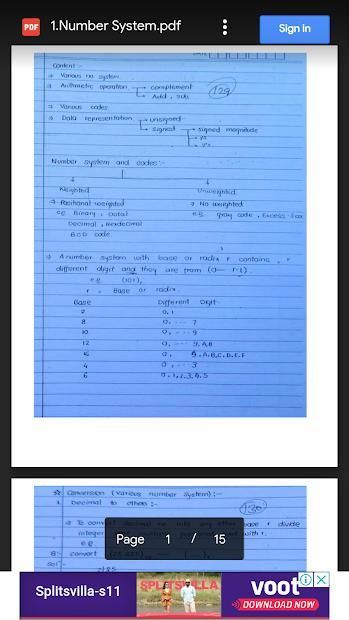 1.Number System.pdf
Sign in
Content :-
→ Various no system.
→ Arithmetic operation → complement
→ Add, sub.
129
→ Various codes
→ Data representation → unsigned
→ signed → signed magnitude
→ 1's
→ 2's
Number system and codes:-
Weighted Unweighted
→ Positional weighted → No weighted
eg. Binary, octal eg. gray code, Excess-
Decimal, Hexdecimal
BCD code
→ A number system with base or radix r contains r
different digit and they are from (0 — r-1).
e.g. (101)₂
r = Base or radix.
Base Different Digit
2 0,1
8 0, --- 7
10 0, --- 9
12 0, --- 9, A, B
16 0, 9, A, B, C, D, E, F
4 0, --- 3
6 0, 1, 2, 3, 4, 5
☆ Conversion (various number system) :-
1. Decimal to others :-
130
→ To convert decimal no. into any other base r divide
integer with r.
e.g.
Q:- convert
Sol
Page 1 / 15
Splitsvilla-s11
SPLITSVILLA
voot
DOWNLOAD NOW